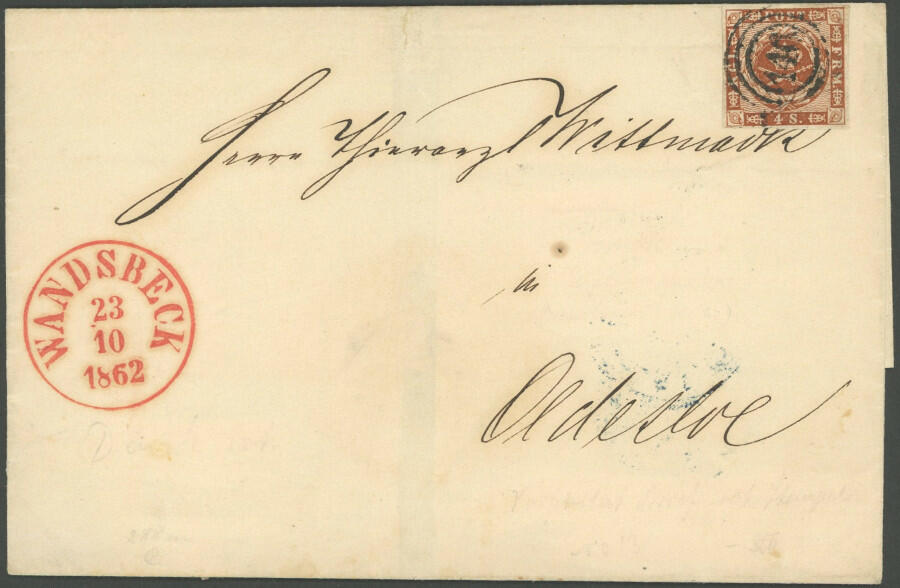 POST
FRM.
4 S.
Herrn Thierarzt Wittmack
in
Oldesloe
WANDSBECK
23
10
1862